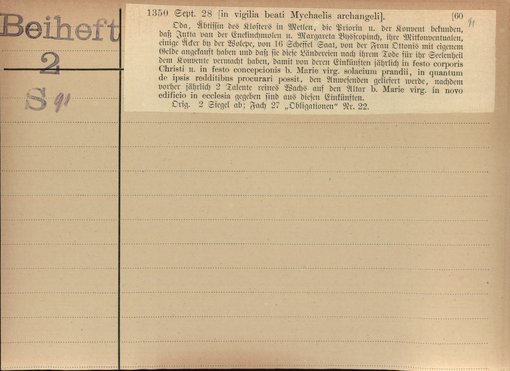 Beiheft
2
S 91
1350 Sept. 28 [in vigilia beati Mychaelis archangeli]. [60
91
Oda, Äbtissin des Klosters in Metlen, die Priorin u. der Konvent bekunden,
daß Jutta van der Enckinchmolen u. Margareta Byscopinch, ihre Mitkonventualen,
einige Äcker by der Wolepe, von 16 Scheffel Saat, von der Frau Ottonis mit eigenem
Gelde angekauft haben und daß sie diese Ländereien nach ihrem Tode für ihr Seelenheil
dem Konvente vermacht haben, damit von deren Einkünften jährlich in festo corporis
Christi u. in festo concepcionis b. Marie virg. solacium prandii, in quantum
de ipsis redditibus procurari possit, den Anwesenden geliefert werde, nachdem
vorher jährlich 2 Talente reines Wachs auf den Altar b. Marie virg. in novo
edificio in ecclesia gegeben sind aus diesen Einkünften.
Orig. 2 Siegel ab; Fach 27 „Obligationen" Nr. 22.